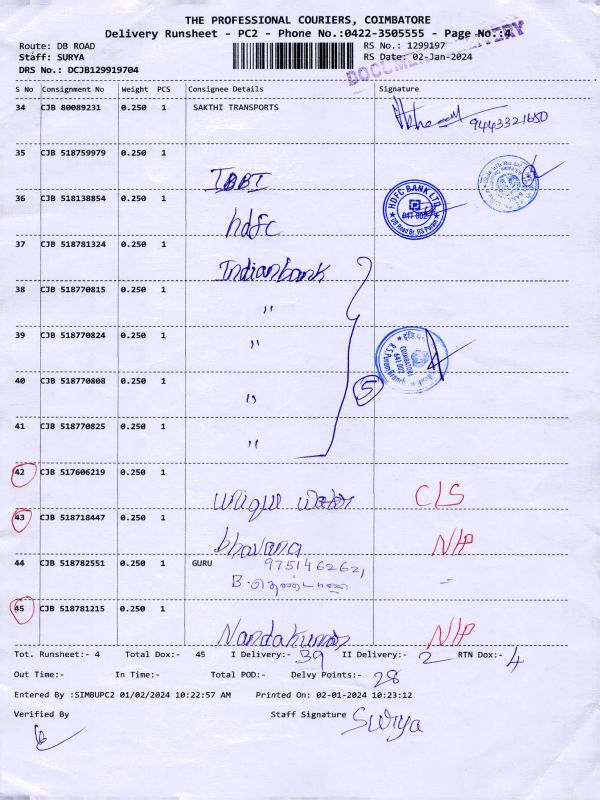 THE PROFESSIONAL COURIERS, COIMBATORE
Delivery Runsheet - PC2 - Phone No.:0422-3505555 - Page No.:4
Route: DB ROAD RS No.: 1299197
Staff: SURYA RS Date: 02-Jan-2024
DRS No.: DCJB129919704
S No Consignment No Weight PCS Consignee Details Signature
34 CJB 80089231 0.250 1 SAKTHI TRANSPORTS
9443321650
35 CJB 518759979 0.250 1
IDBI
36 CJB 518138854 0.250 1
HDFC BANK LTD.
hdfc
37 CJB 518781324 0.250 1
Indianbank
38 CJB 518770815 0.250 1
"
39 CJB 518770824 0.250 1
"
40 CJB 518770808 0.250 1
" 5
41 CJB 518770825 0.250 1
"
42 CJB 517606219 0.250 1
unique water CLS
43 CJB 518718447 0.250 1
bhavana N/P
44 CJB 518782551 0.250 1 GURU
9751462621
45 CJB 518781215 0.250 1
Nandakumar N/P
Tot. Runsheet:- 4 Total Dox:- 45 I Delivery:- 39 II Delivery:- 2 RTN Dox:- 4
Out Time:- In Time:- Total POD:- Delvy Points:- 28
Entered By :SIMBUPC2 01/02/2024 10:22:57 AM Printed On: 02-01-2024 10:23:12
Verified By Staff Signature Surya